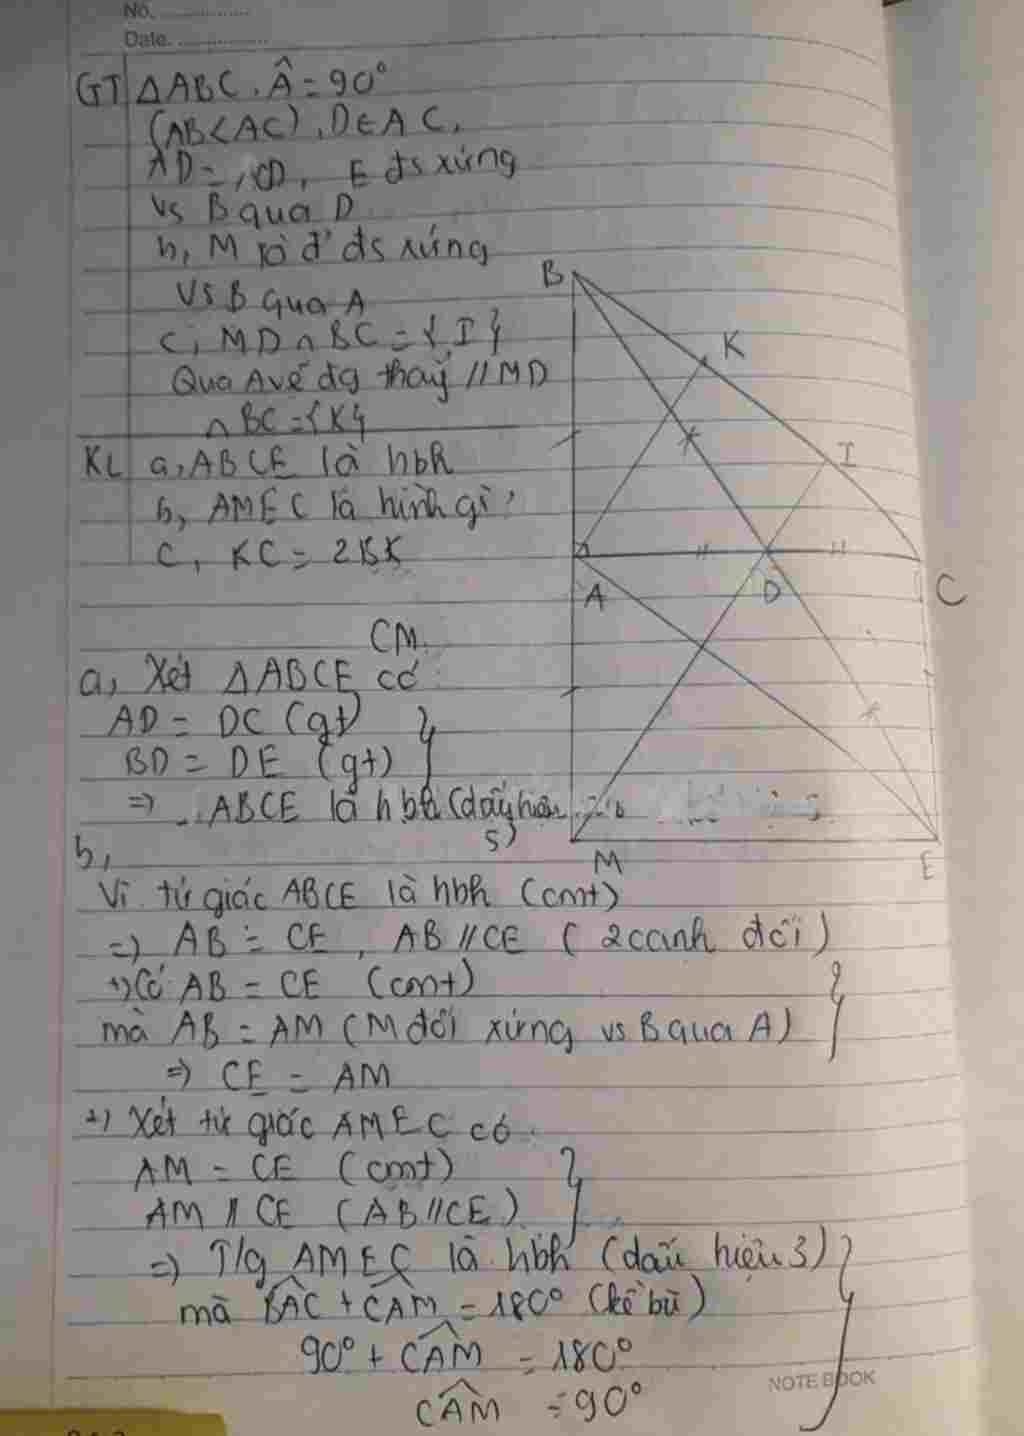 No. ..............
Date. ..............
GT ΔABC. Â = 90°
(AB < AC), D ∈ AC,
AD = CD, E đs xứng
vs B qua D
b, M là đ' đs xứng
vs B qua A
c, MD ∩ BC = {I}
Qua A vẽ đg thẳg // MD
∩ BC = {K}
KL a, ABCE là hbh
b, AMEC là hình gì?
c, KC = 2BK
B
K
I
A
D
C
M
E
CM
a, Xét ΔABCE có
AD = DC (gt) }
BD = DE (gt)
=> ABCE là hbh (dấu hiệu
5)
b,
Vì tứ giác ABCE là hbh (cmt)
=> AB = CE, AB // CE (2 cạnh đối)
+) Có AB = CE (cmt) }
mà AB = AM (M đối xứng vs B qua A)
=> CE = AM
+) Xét tứ giác AMEC có
AM = CE (cmt) }
AM // CE (AB // CE)
=> T/g AMEC là hbh (dấu hiệu 3) }
mà BAC + CAM = 180° (kề bù)
90° + CAM = 180°
CAM = 90°
NOTE BOOK